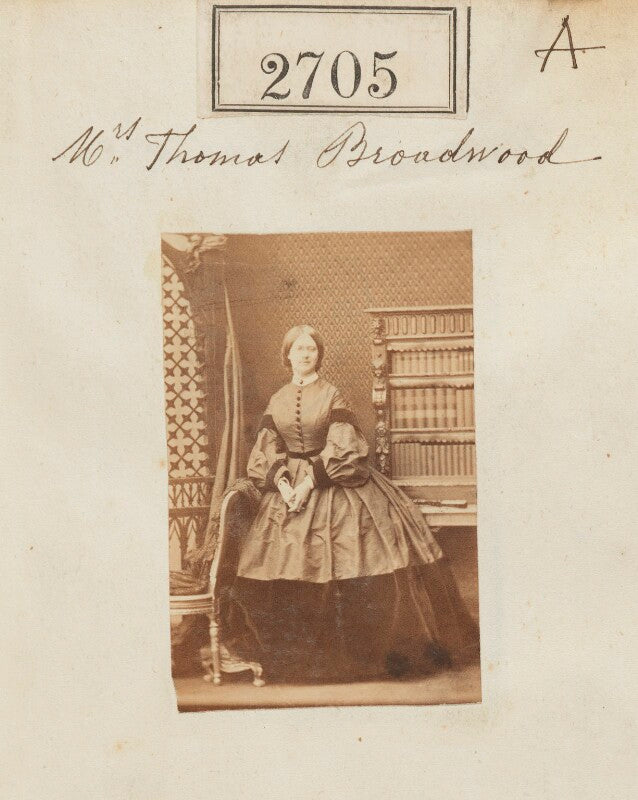 2705
A
Mrs Thomas Broadwood